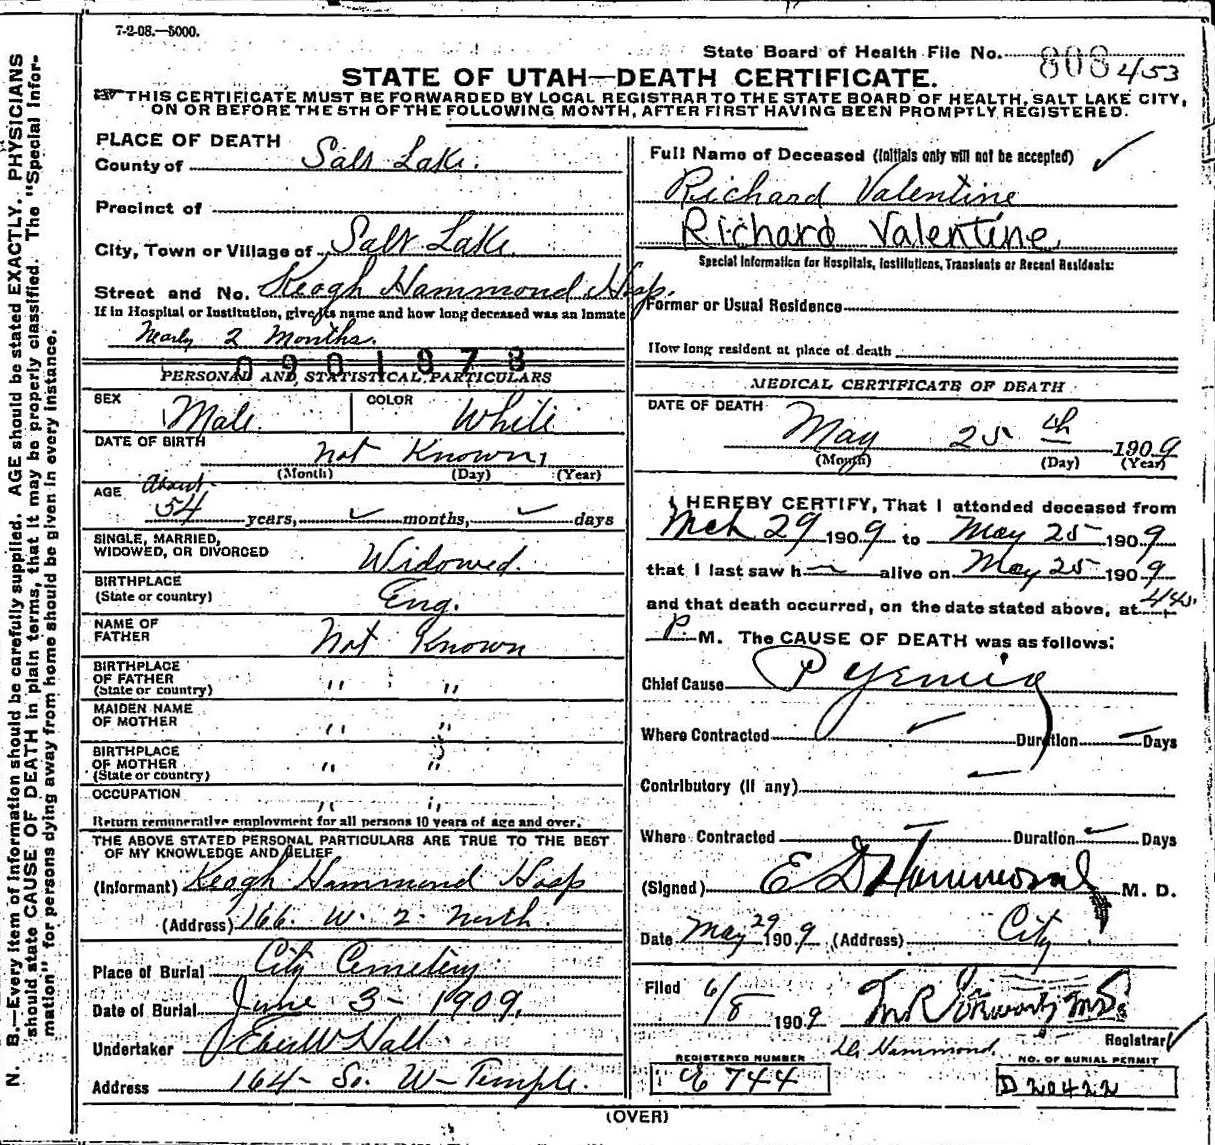 7-2-08.—5000.
State Board of Health File No. 808 453
STATE OF UTAH—DEATH CERTIFICATE.
THIS CERTIFICATE MUST BE FORWARDED BY LOCAL REGISTRAR TO THE STATE BOARD OF HEALTH, SALT LAKE CITY,
ON OR BEFORE THE 5TH OF THE FOLLOWING MONTH, AFTER FIRST HAVING BEEN PROMPTLY REGISTERED.
N. B.—Every item of information should be carefully supplied. AGE should be stated EXACTLY. PHYSICIANS
should state CAUSE OF DEATH in plain terms, that it may be properly classified. The "Special Infor-
mation" for persons dying away from home should be given in every instance.
PLACE OF DEATH
County of Salt Lake.
Precinct of
City, Town or Village of Salt Lake
Street and No. Keogh Hammond Hosp.
If in Hospital or Institution, give its name and how long deceased was an inmate
Nearly 2 Months.
0901878
PERSONAL AND STATISTICAL PARTICULARS
SEX Male. COLOR White
DATE OF BIRTH Not Known,
(Month) (Day) (Year)
AGE About
54 years, ✓ months, ✓ days
SINGLE, MARRIED,
WIDOWED, OR DIVORCED Widowed.
BIRTHPLACE
(State or country) Eng.
NAME OF
FATHER Not Known
BIRTHPLACE
OF FATHER
(State or country) " "
MAIDEN NAME
OF MOTHER " "
BIRTHPLACE
OF MOTHER
(State or country) " "
OCCUPATION " "
Return remunerative employment for all persons 10 years of age and over.
THE ABOVE STATED PERSONAL PARTICULARS ARE TRUE TO THE BEST
OF MY KNOWLEDGE AND BELIEF
(Informant) Keogh Hammond Hosp
(Address) 166. W. 2. North.
Place of Burial City Cemetery
Date of Burial June 3 - 1909.
Undertaker Eber W Hall
Address 164 - So. W - Temple.
Full Name of Deceased (Initials only will not be accepted) ✓
Richard Valentine
Richard Valentine
Special Information for Hospitals, Institutions, Transients or Recent Residents:
Former or Usual Residence
How long resident at place of death
MEDICAL CERTIFICATE OF DEATH
DATE OF DEATH
May 25 th 1909
(Month) (Day) (Year)
I HEREBY CERTIFY, That I attended deceased from
Mch 29 1909 to May 25 1909
that I last saw h alive on May 25 1909
and that death occurred, on the date stated above, at 445
P. M. The CAUSE OF DEATH was as follows:
Chief Cause Pyemia
Where Contracted Duration Days
Contributory (if any)
Where Contracted Duration Days
(Signed) E D Hammond M. D.
Date May 29 1909 (Address) City
Filed 6/8 1909
Registrar
Dr Hammond.
REGISTERED NUMBER
744
NO. OF BURIAL PERMIT
D 20422
(OVER)